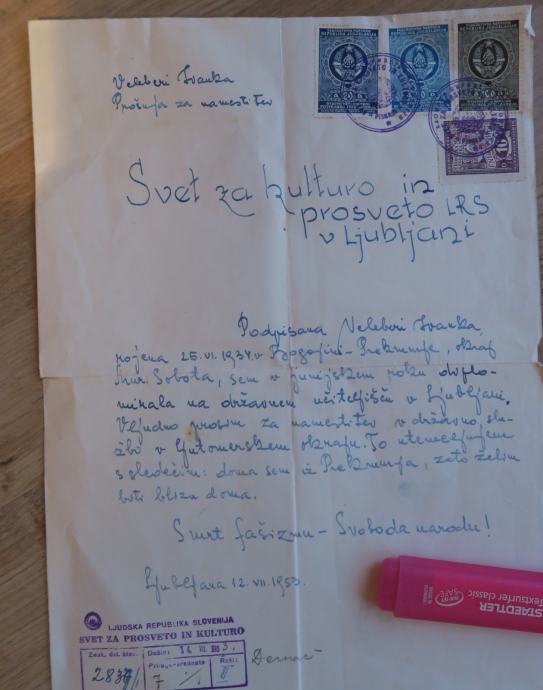 Veleberi Ivanka
Prošnja za namestitev
Svet za kulturo in
prosveto LRS
v Ljubljani
Podpisana Veleberi Ivanka,
rojena 25. VI. 1934. v Bogojini-Prekmurje, okraj
Mur. Sobota, sem v junijskem roku diplo-
mirala na državnem učiteljišču v Ljubljani.
Vljudno prosim za namestitev v državno slu-
žbo v ljutomerskem okraju. To utemeljujem
s sledečim: doma sem iz Prekmurja, zato želim
biti blizu doma.
Smrt fašizmu - Svoboda narodu!
Ljubljana 12. VII. 1953.
LJUDSKA REPUBLIKA SLOVENIJA
SVET ZA PROSVETO IN KULTURO
Došlo: 14 VII
7
STAEDTLER
Textsurfer classic